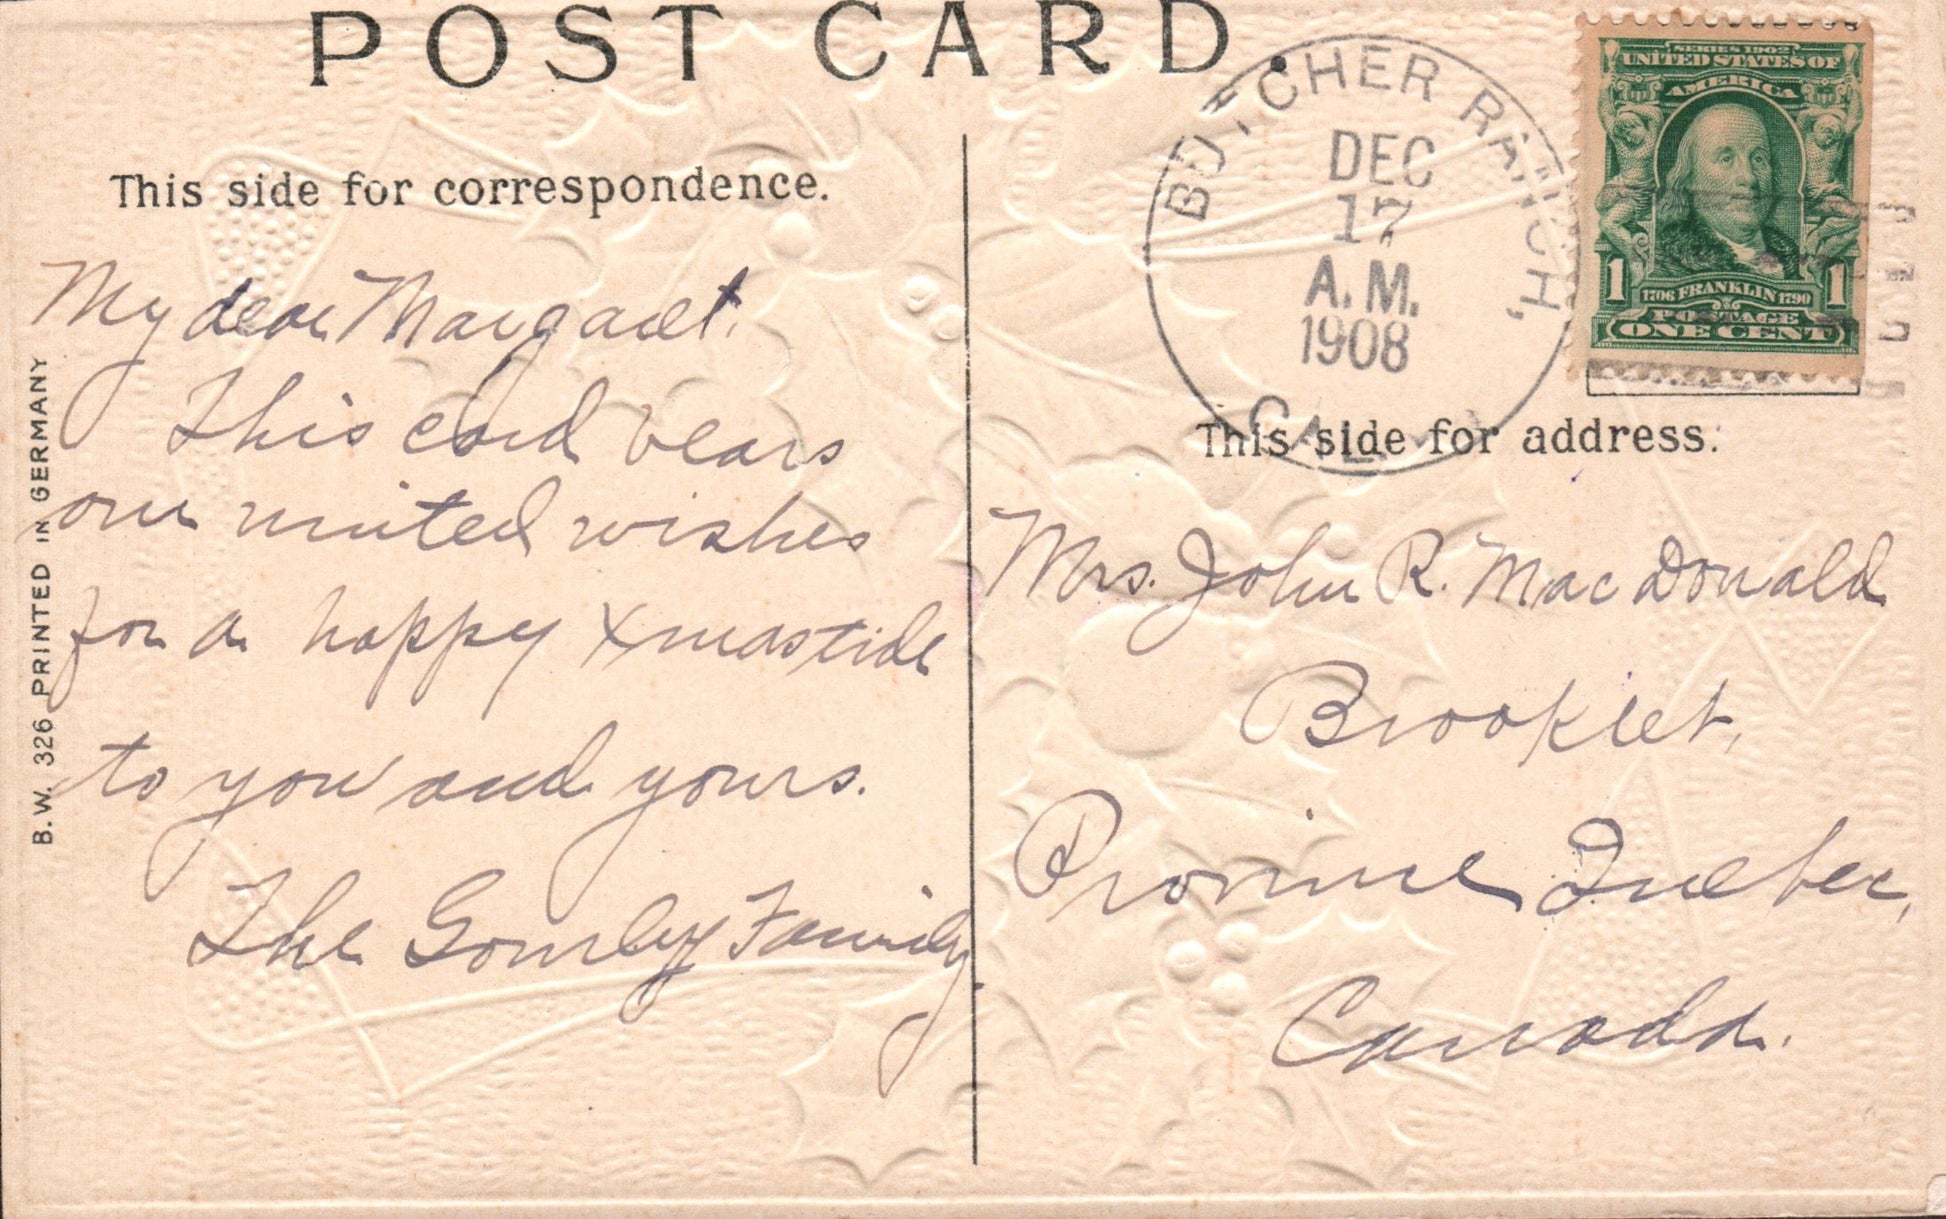 POST CARD.
BUTCHER RANCH,
DEC
17
A.M.
1908
CAL.
SERIES 1902
UNITED STATES OF
AMERICA
1 1706 FRANKLIN 1790 1
POSTAGE
ONE CENT
This side for correspondence.
My dear Margaret.
This card bears
our united wishes
for a happy Xmastide
to you and yours.
The Gourley Family.
B.W. 326 PRINTED IN GERMANY
This side for address.
Mrs. John R. MacDonald
Brooklet,
Province Quebec,
Canada.